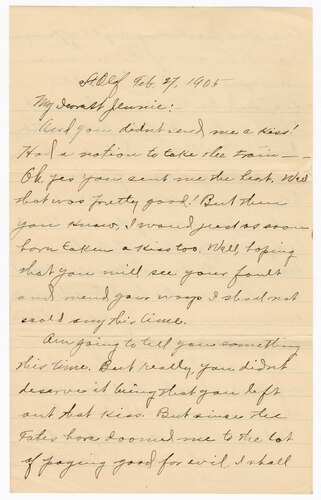 St. Olf Feb. 27, 1905
My dearest Jennie:
And you didn't send me a kiss!
Had a notion to take the train—
Oh yes you sent me the best. Well
that was pretty good! But then
you know, I would just as soon
have taken a kiss too. Well hoping
that you will see your fault
and mend your ways I shall not
scold any this time.
Am going to tell you something
this time. But really, you didn't
deserve it being that you left
out that kiss. But since the
Fates have doomed me to the lot
of paying good for evil, I shall